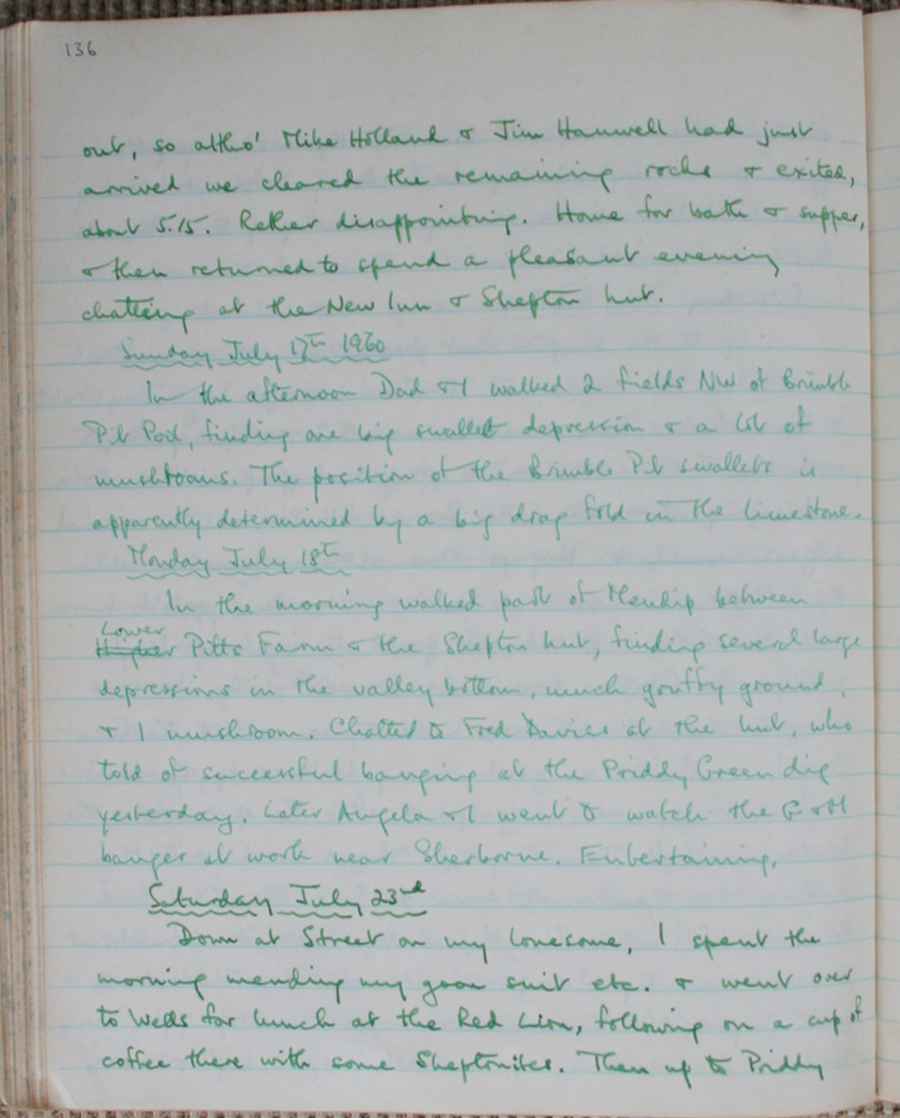 136
out, so altho' Mike Holland & Jim Hanwell had just
arrived we cleared the remaining rocks & exited,
about 5.15. Rather disappointing. Home for bath & supper,
& then returned to spend a pleasant evening
chatting at the New Inn & Shepton hut.
Sunday July 17th 1960
In the afternoon Dad & I walked 2 fields NW of Brimble
Pit Pool, finding one big swallet depression & a lot of
mushrooms. The position of the Brimble Pit swallets is
apparently determined by a big drag fold in the limestone.
Monday July 18th
In the morning walked part of Mendip between
Lower
Higher Pitts Farm & the Shepton hut, finding several large
depressions in the valley bottom, much gruffy ground,
& 1 mushroom. Chatted to Fred Davies at the hut, who
told of successful banging at the Priddy Green dig
yesterday. Later Angela & I went to watch the G & H
banger at work near Sherborne. Entertaining.
Saturday July 23rd
Down at Street on my lonesome, I spent the
morning mending my goon suit etc. & went over
to Wells for lunch at the Red Lion, following on a cup of
coffee there with some Sheptonites. Then up to Priddy